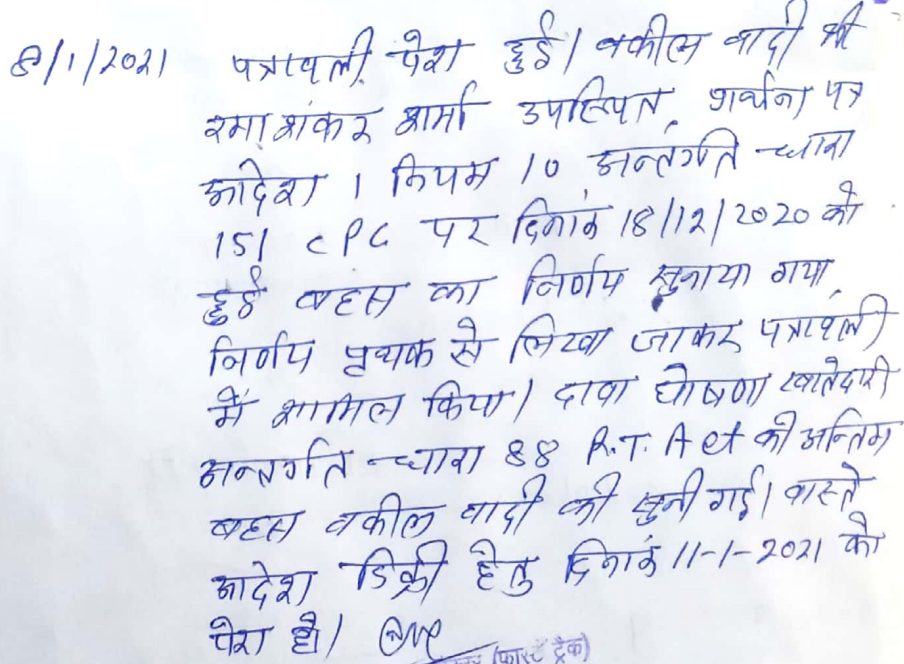 8/1/2021 पत्रावली पेश हुई। वकील वादी श्री
रमाशंकर शर्मा उपस्थित, प्रार्थना पत्र
आदेश 1 नियम 10 अन्तर्गत धारा
151 CPC पर दिनांक 18/12/2020 को
हुई बहस का निर्णय सुनाया गया,
निर्णय पृथक से लिखा जाकर पत्रावली
में शामिल किया। दावा घोषणा खातेदारी
अन्तर्गत धारा 88 R.T. Act की अन्तिम
बहस वकील वादी की सुनी गई। वास्ते
आदेश डिक्री हेतु दिनांक 11-1-2021 को
पेश हो।
(फास्ट ट्रैक)